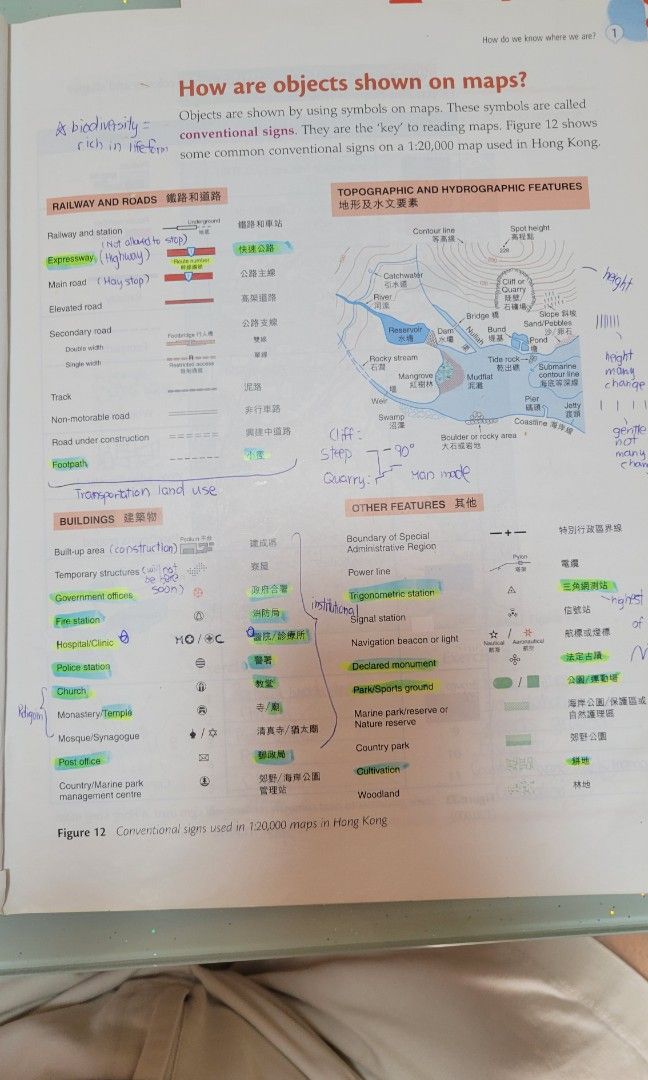 How do we know where we are? 1
How are objects shown on maps?
Objects are shown by using symbols on maps. These symbols are called
conventional signs. They are the 'key' to reading maps. Figure 12 shows
some common conventional signs on a 1:20,000 map used in Hong Kong.
☆ biodiversity =
rich in lifeform
RAILWAY AND ROADS 鐵路和道路
Railway and station Underground 地底 鐵路和車站
(Not allowed to stop)
Expressway (Highway) Route number 幹線編號 快速公路
Main road (May stop) 公路主線
Elevated road 高架道路
Secondary road 公路支線
Double width Footbridge 行人橋 雙線
Single width R Restricted access 限制通道 單線
Track 泥路
Non-motorable road 非行車路
Road under construction 興建中道路
Footpath 小徑
Transportation land use
TOPOGRAPHIC AND HYDROGRAPHIC FEATURES
地形及水文要素
Contour line
等高線
Spot height
高程點
228
Catchwater
引水道
Cliff or
Quarry
陡壁
石礦場
River
河流
Bridge 橋
Slope 斜坡
Sand/Pebbles
沙/卵石
Reservoir
水塘
Dam
水壩
Nullah
Bund
堤基
Pond
塘
Rocky stream
石澗
Tide rock
乾出礁
Submarine
contour line
海底等深線
Mangrove
紅樹林
Mudflat
泥灘
Weir
堰
Swamp
沼澤
Pier
碼頭
Jetty
Coastline 海岸線
Boulder or rocky area
大石或岩地
height
height
many
change
gentle
not
many
Cliff:
Steep 90°
Quarry: Man made
BUILDINGS 建築物
Built-up area (construction) Podium 平台 建成區
Temporary structures (will not be here soon) 寮屋
Government offices 政府合署
Fire station 消防局
Hospital/Clinic 醫院/診療所
Police station 警署
Church 教堂
Monastery/Temple 寺/廟
Mosque/Synagogue 清真寺/猶太廟
Post office 郵政局
Country/Marine park
management centre
郊野/海岸公園
管理站
institutional
OTHER FEATURES 其他
Boundary of Special
Administrative Region
特別行政區界線
Power line Pylon 塔架 電纜
Trigonometric station 三角網測站
Signal station 信號站
Navigation beacon or light Nautical 航海 / Aeronautical 航空 航標或燈標
Declared monument 法定古蹟
Park/Sports ground 公園/運動場
Marine park/reserve or
Nature reserve
海岸公園/保護區或
自然護理區
Country park 郊野公園
Cultivation 耕地
Woodland 林地
highest
of
Figure 12 Conventional signs used in 1:20,000 maps in Hong Kong